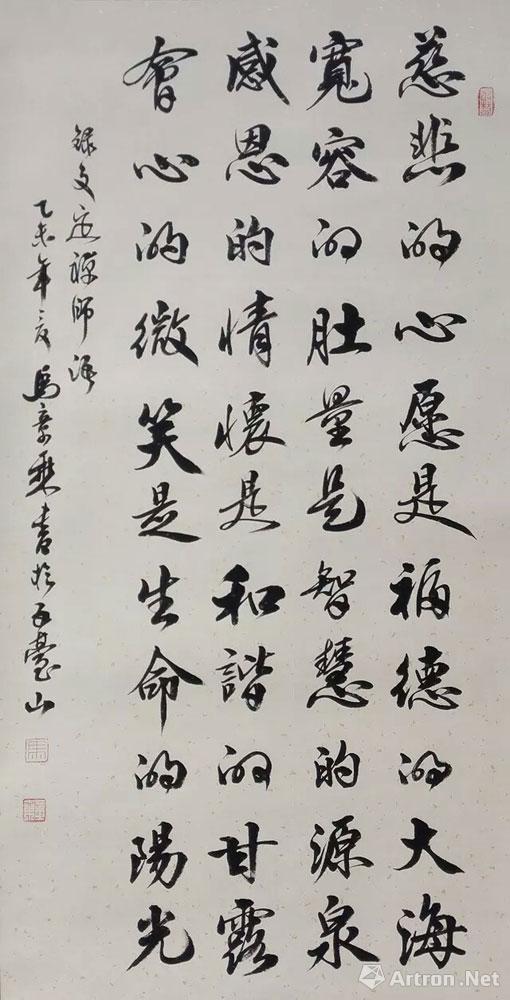 慈悲的心愿是福德的大海
寬容的肚量是智慧的源泉
感恩的情懷是和諧的甘露
會心的微笑是生命的陽光
錄文定禪師語
乙未年夏馬景書於五臺山
Artron.Net